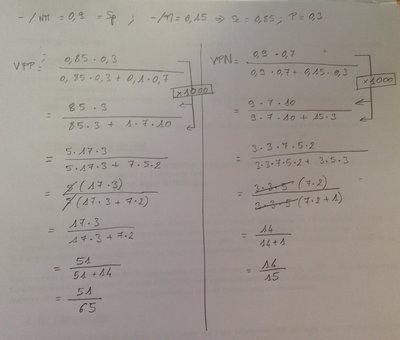 -/nM = 0,9 = Sp ; -/M = 0,15 ⇒ S = 0,85 ; P = 0,3
VPP = 0,85·0,3 / 0,85·0,3 + 0,1·0,7
×1000
= 85·3 / 85·3 + 1·7·10
= 5·17·3 / 5·17·3 + 7·5·2
= 5(17·3) / 5(17·3 + 7·2)
= 17·3 / 17·3 + 7·2
= 51 / 51 + 14
= 51 / 65
VPN = 0,9·0,7 / 0,9·0,7 + 0,15·0,3
×1000
= 9·7·10 / 9·7·10 + 15·3
= 3·3·7·5·2 / 3·3·7·5·2 + 3·5·3
= 3·3·5(7·2) / 3·3·5(7·2+1)
= 14 / 14+1
= 14 / 15